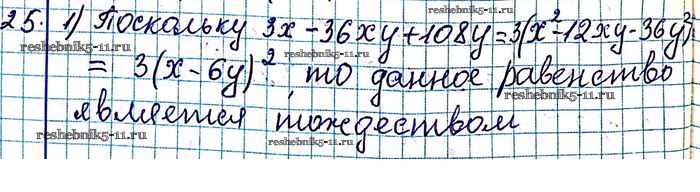 25. 1) Поскольку 3x - 36xy + 108y = 3(x² - 12xy - 36y²) =
= 3(x - 6y)², то данное равенство
является тождеством
reshebnik5-11.ru
reshebnik5-11.ru
reshebnik5-11.ru
reshebnik5-11.ru
reshebnik5-11.ru